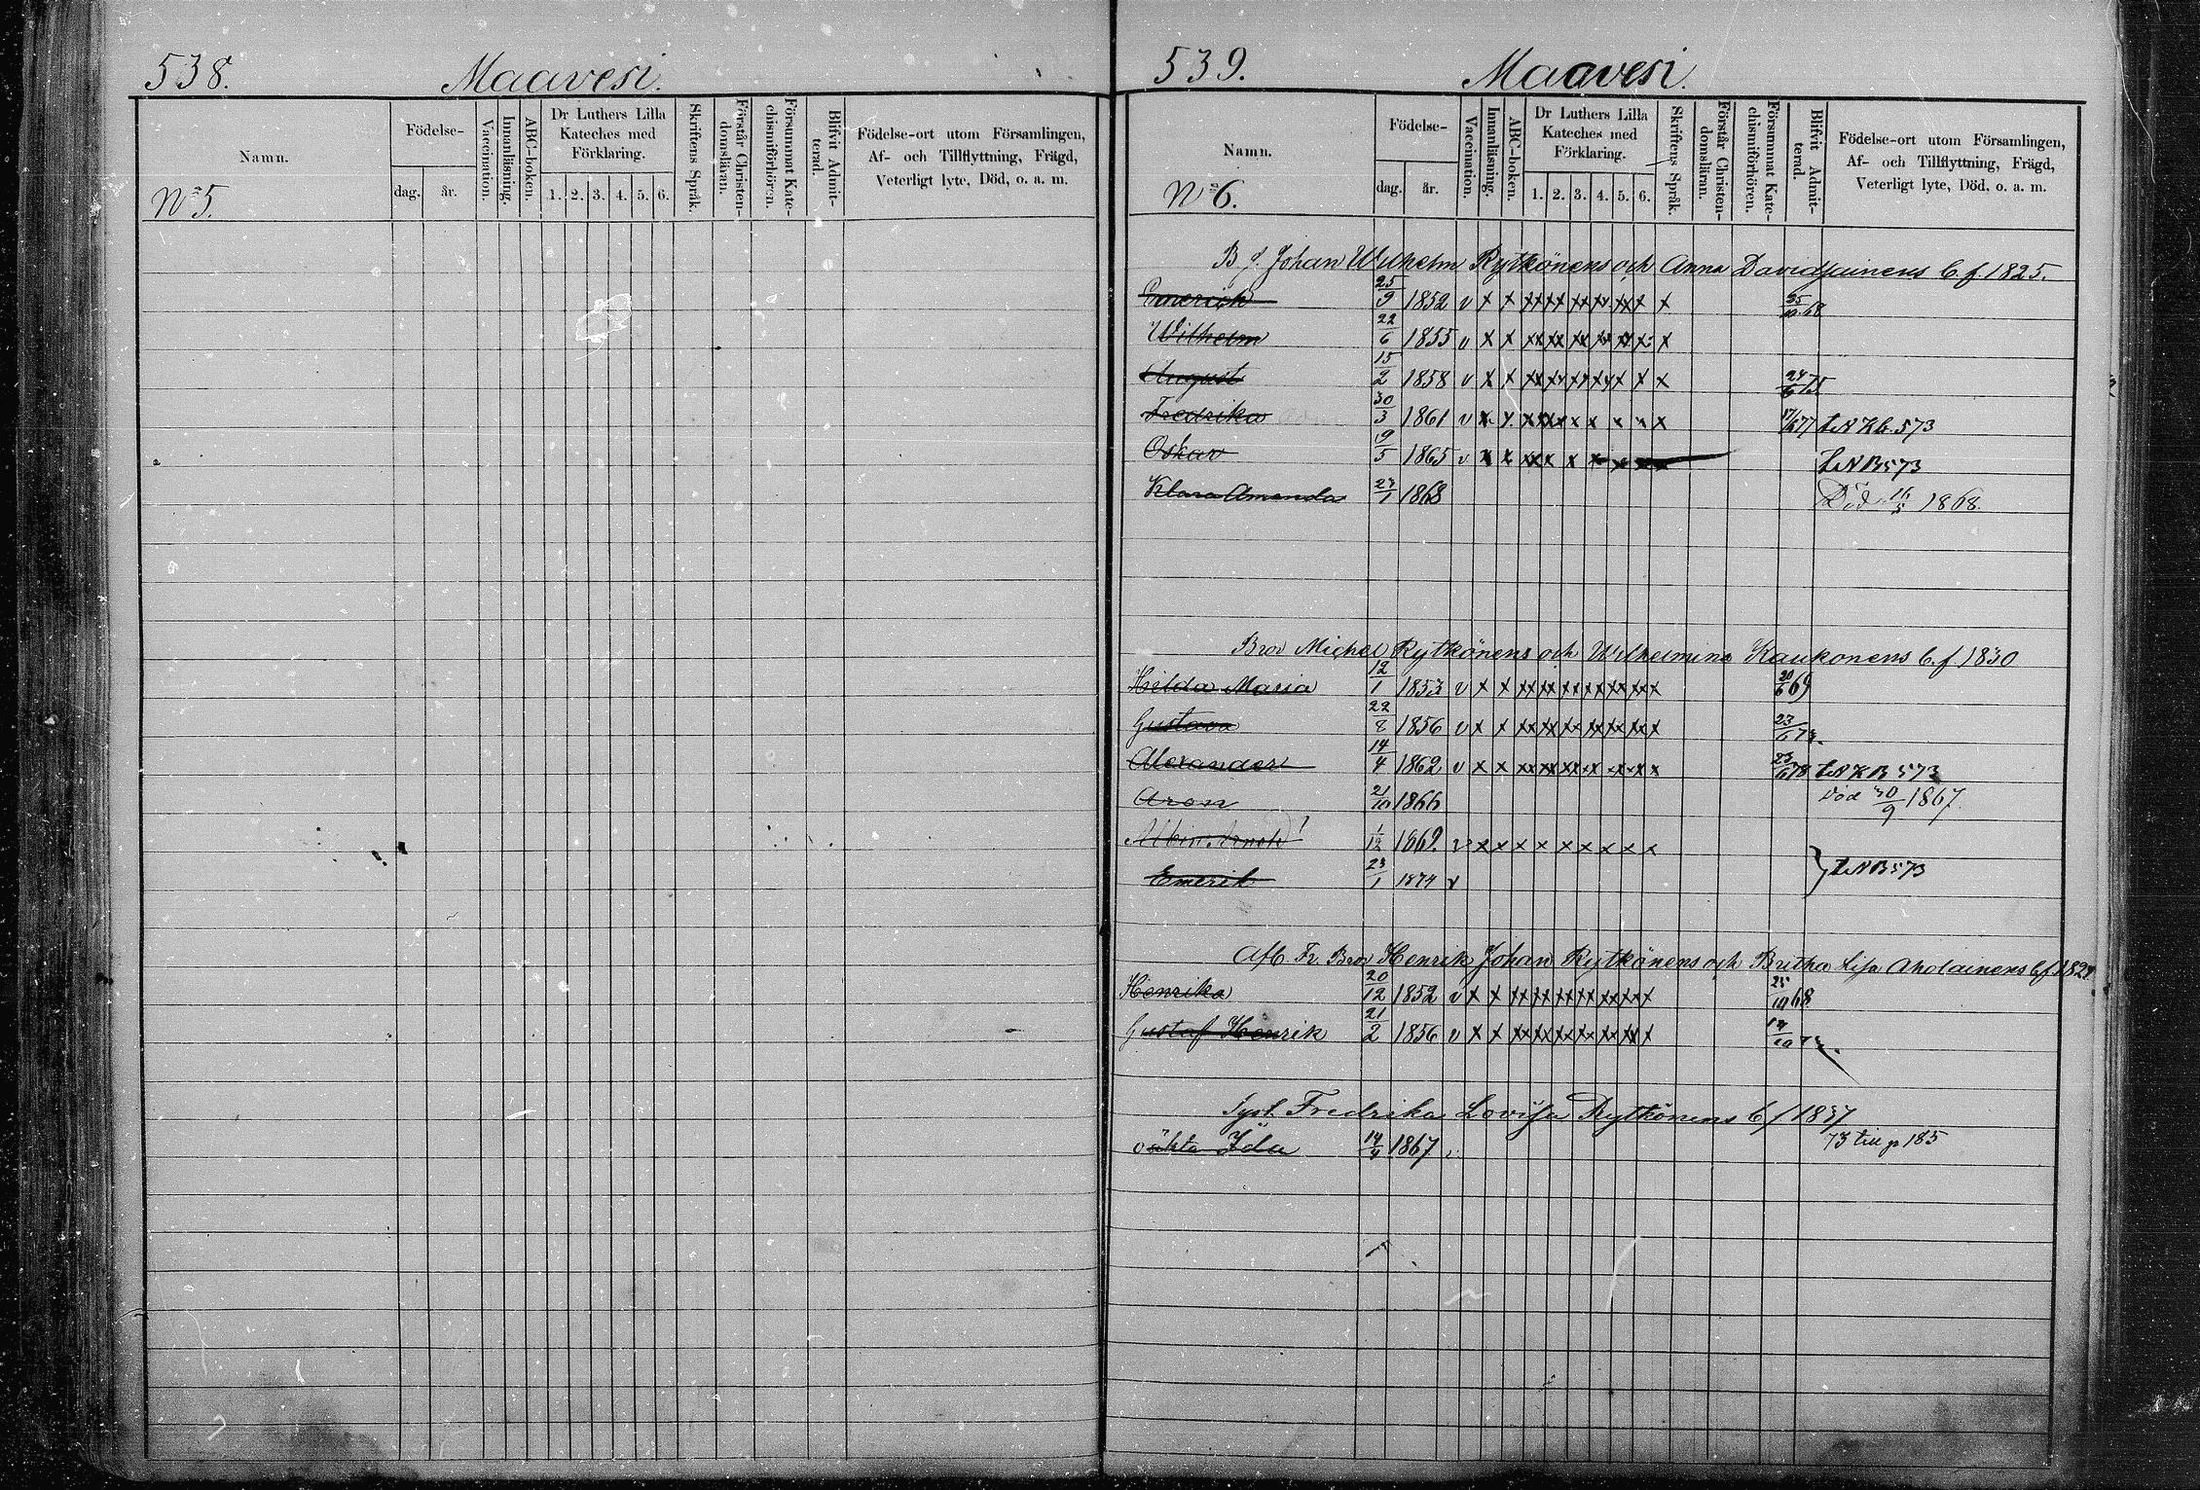 538. Maavesi.
Namn. Födelse- dag. år. Vaccination. Innanläsning. ABC-boken. Dr Luthers Lilla Kateches med Förklaring. 1. 2. 3. 4. 5. 6. Skriftens Språk. Förstår Christen-domsläran. Försummat Kate-chismiförhören. Blifvit Admit-terad. Födelse-ort utom Församlingen, Af- och Tillflyttning, Frägd, Veterligt lyte, Död, o. a. m.
No 5.
539. Maavesi.
Namn. Födelse- dag. år. Vaccination. Innanläsning. ABC-boken. Dr Luthers Lilla Kateches med Förklaring. 1. 2. 3. 4. 5. 6. Skriftens Språk. Förstår Christen-domsläran. Försummat Kate-chismiförhören. Blifvit Admit-terad. Födelse-ort utom Församlingen, Af- och Tillflyttning, Frägd, Veterligt lyte, Död, o. a. m.
No 6.
B f. Johan Wilhelm Rytkönens och Anna Davidsainens b.f. 1825.
Emerick 25/9 1852 v x x xx xx xx xx xx x x 25/10 68
Wilhelm 22/6 1855 v x x xx xx xx xx xx x x
August 15/2 1858 v x x xx xx xx xx x x x 24/6 75
Fredrika 30/3 1861 v x x x xx x x x x x x 17/6 77 LNKb. 573
Oskar 19/5 1865 v x x xx x x x x x LNB 573
Klara Amanda 27/1 1868 Död 16/5 1868.
Bror Michel Rytkönens och Wilhelmina Kaukonens b.f 1830
Hilda Maria 12/1 1853 v x x xx xx xx xx xx xx x 20/6 69
Gustava 22/8 1856 v x x xx xx xx xx xx xx x 23/6 73.
Alexander 14/4 1862 v x x xx xx xx x x x x x 23/6 78 LNKB 573
Aron 21/10 1866 Död 30/9 1867.
Albin 1/12 1869. v x x x x x x x x x
Emerik 23/1 1874 v } LNB 573
Afl. Fr. Bror Henrik Johan Rytkönens och Britha Lisa Aholainens b.f. 182
Henrika 20/12 1852 v x x xx xx xx xx xx xx x 25/10 68
Gustaf Henrik 21/2 1856 v x x xx xx xx xx xx xx x 10 73.
Syst. Fredrika Lovisa Rytkönens b f 1837
oäkta Ida 14/4 1867 v 73 till p 185